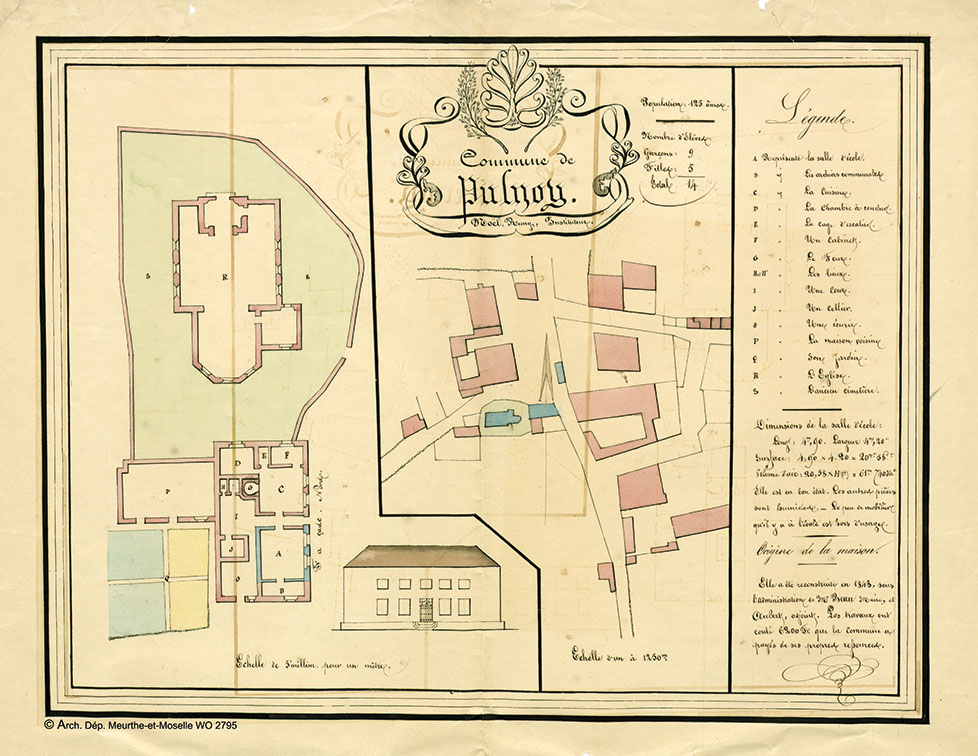 Commune de
Pulnoy.
Noël, Remy, Instituteur.
Population: 125 âmes.
Nombre d'Elèves
Garçons: 9
Filles: 5
Total 14
Légende.
A Représente la salle d'école.
B " Les archives communales
C " La Cuisine.
D " La Chambre à coucher
E " La cage d'escalier
F " Un Cabinet.
G " Le Four.
H et H' " Les lieux.
I " Une Cour.
J " Un Cellier.
O " Une écurie
P " La maison voisine
Q " Son Jardin.
R " L'Eglise.
S " L'ancien cimetière.
Dimensions de la salle d'école:
Long.r 4m,90. Largeur 4m,20
Surface: 4,90 × 4.20 = 20mq 58
Volume d'air: 20,58 ×
Elle est en bon état. Les autres pièces
sont humides. _ Le peu de mobilier
qu'il y a à l'école est hors d'usage.
Origine de la maison.
Elle a été reconstruite en 1843, sous
l'administration de Mrs Maire, et
Aubert, adjoint. Les travaux ont
couté 6200 Fs que la commune a
payés de ses propres ressources.
S
R
S
P
D
E
F
C
I
A
J
O
B
Q
Façade Nord
Echelle de 5 millim. pour un mètre.
Echelle d'un à 1250m
© Arch. Dép. Meurthe-et-Moselle WO 2795